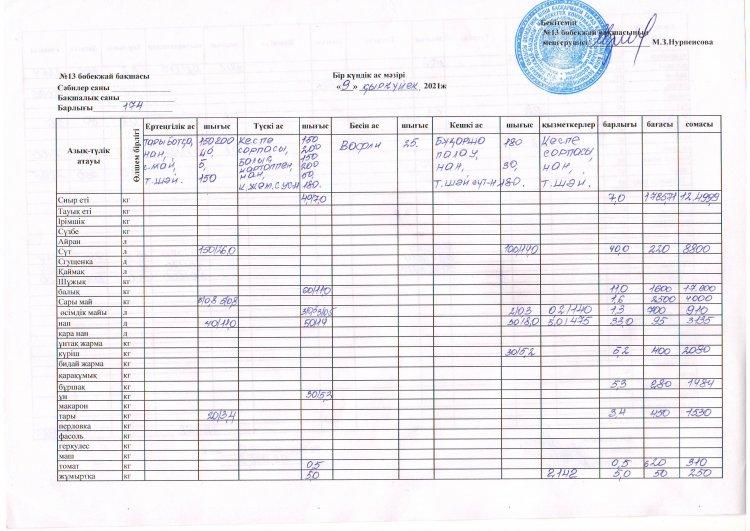 Бекітемін
№13 бөбекжай бақшасының
меңгерушісі М.З.Нурпеисова
№13 бөбекжай бақшасы
Сәбилер саны
Бақшалық саны
Барлығы 174
Бір күндік ас мәзірі
«9» қыркүйек 2021ж
Азық-түлік атауы Өлшем бірлігі Ертеңгілік ас шығыс Түскі ас шығыс Бесін ас шығыс Кешкі ас шығыс қызметкерлер барлығы бағасы сомасы
Тары ботқа, 150/200 Кеспе 150 Вафли 25. Бұқарша 180 Кеспе
нан, 40, сорпасы, 200 палау, сорпасы
с.май, 5, балық 150 нан, 30, нан,
т.шәй. 150 картоппен 200 т.шәй сүт-н 180. т.шәй.
нан 60,
к.жем.сусн 180.
Сиыр еті кг 40/7.0 7,0 1785,71 12.4999
Тауық еті кг
Ірімшік кг
Сүзбе кг
Айран л
Сүт л 150/26,0 100/14,0 40,0 220 8800
Сгущенка л
Қаймақ л
Шұжық кг
балық кг 60/11.0 11,0 1600 17.600
Сары май кг 5/0.8 5/0,8 1,6 2500 4000
өсімдік майы л 2/0.3 0.2/140 1.3 700 910
нан л 40/11.0 50/14 30/8,0 33,0 95 3135
қара нан л
ұнтақ жарма кг
күріш кг 30/5,2 5,2 400 2080
бидай жарма кг
қарақұмық кг
бұршақ кг 5,3 280 1484
ұн кг 30/5,2
макарон кг
тары кг 20/3,4 3,4 450 1530
перловка кг
фасоль кг
геркулес кг
маш кг
томат кг 0,5 0,5 620 310
жұмыртка кг 5.0 2.142 5,0 50 250